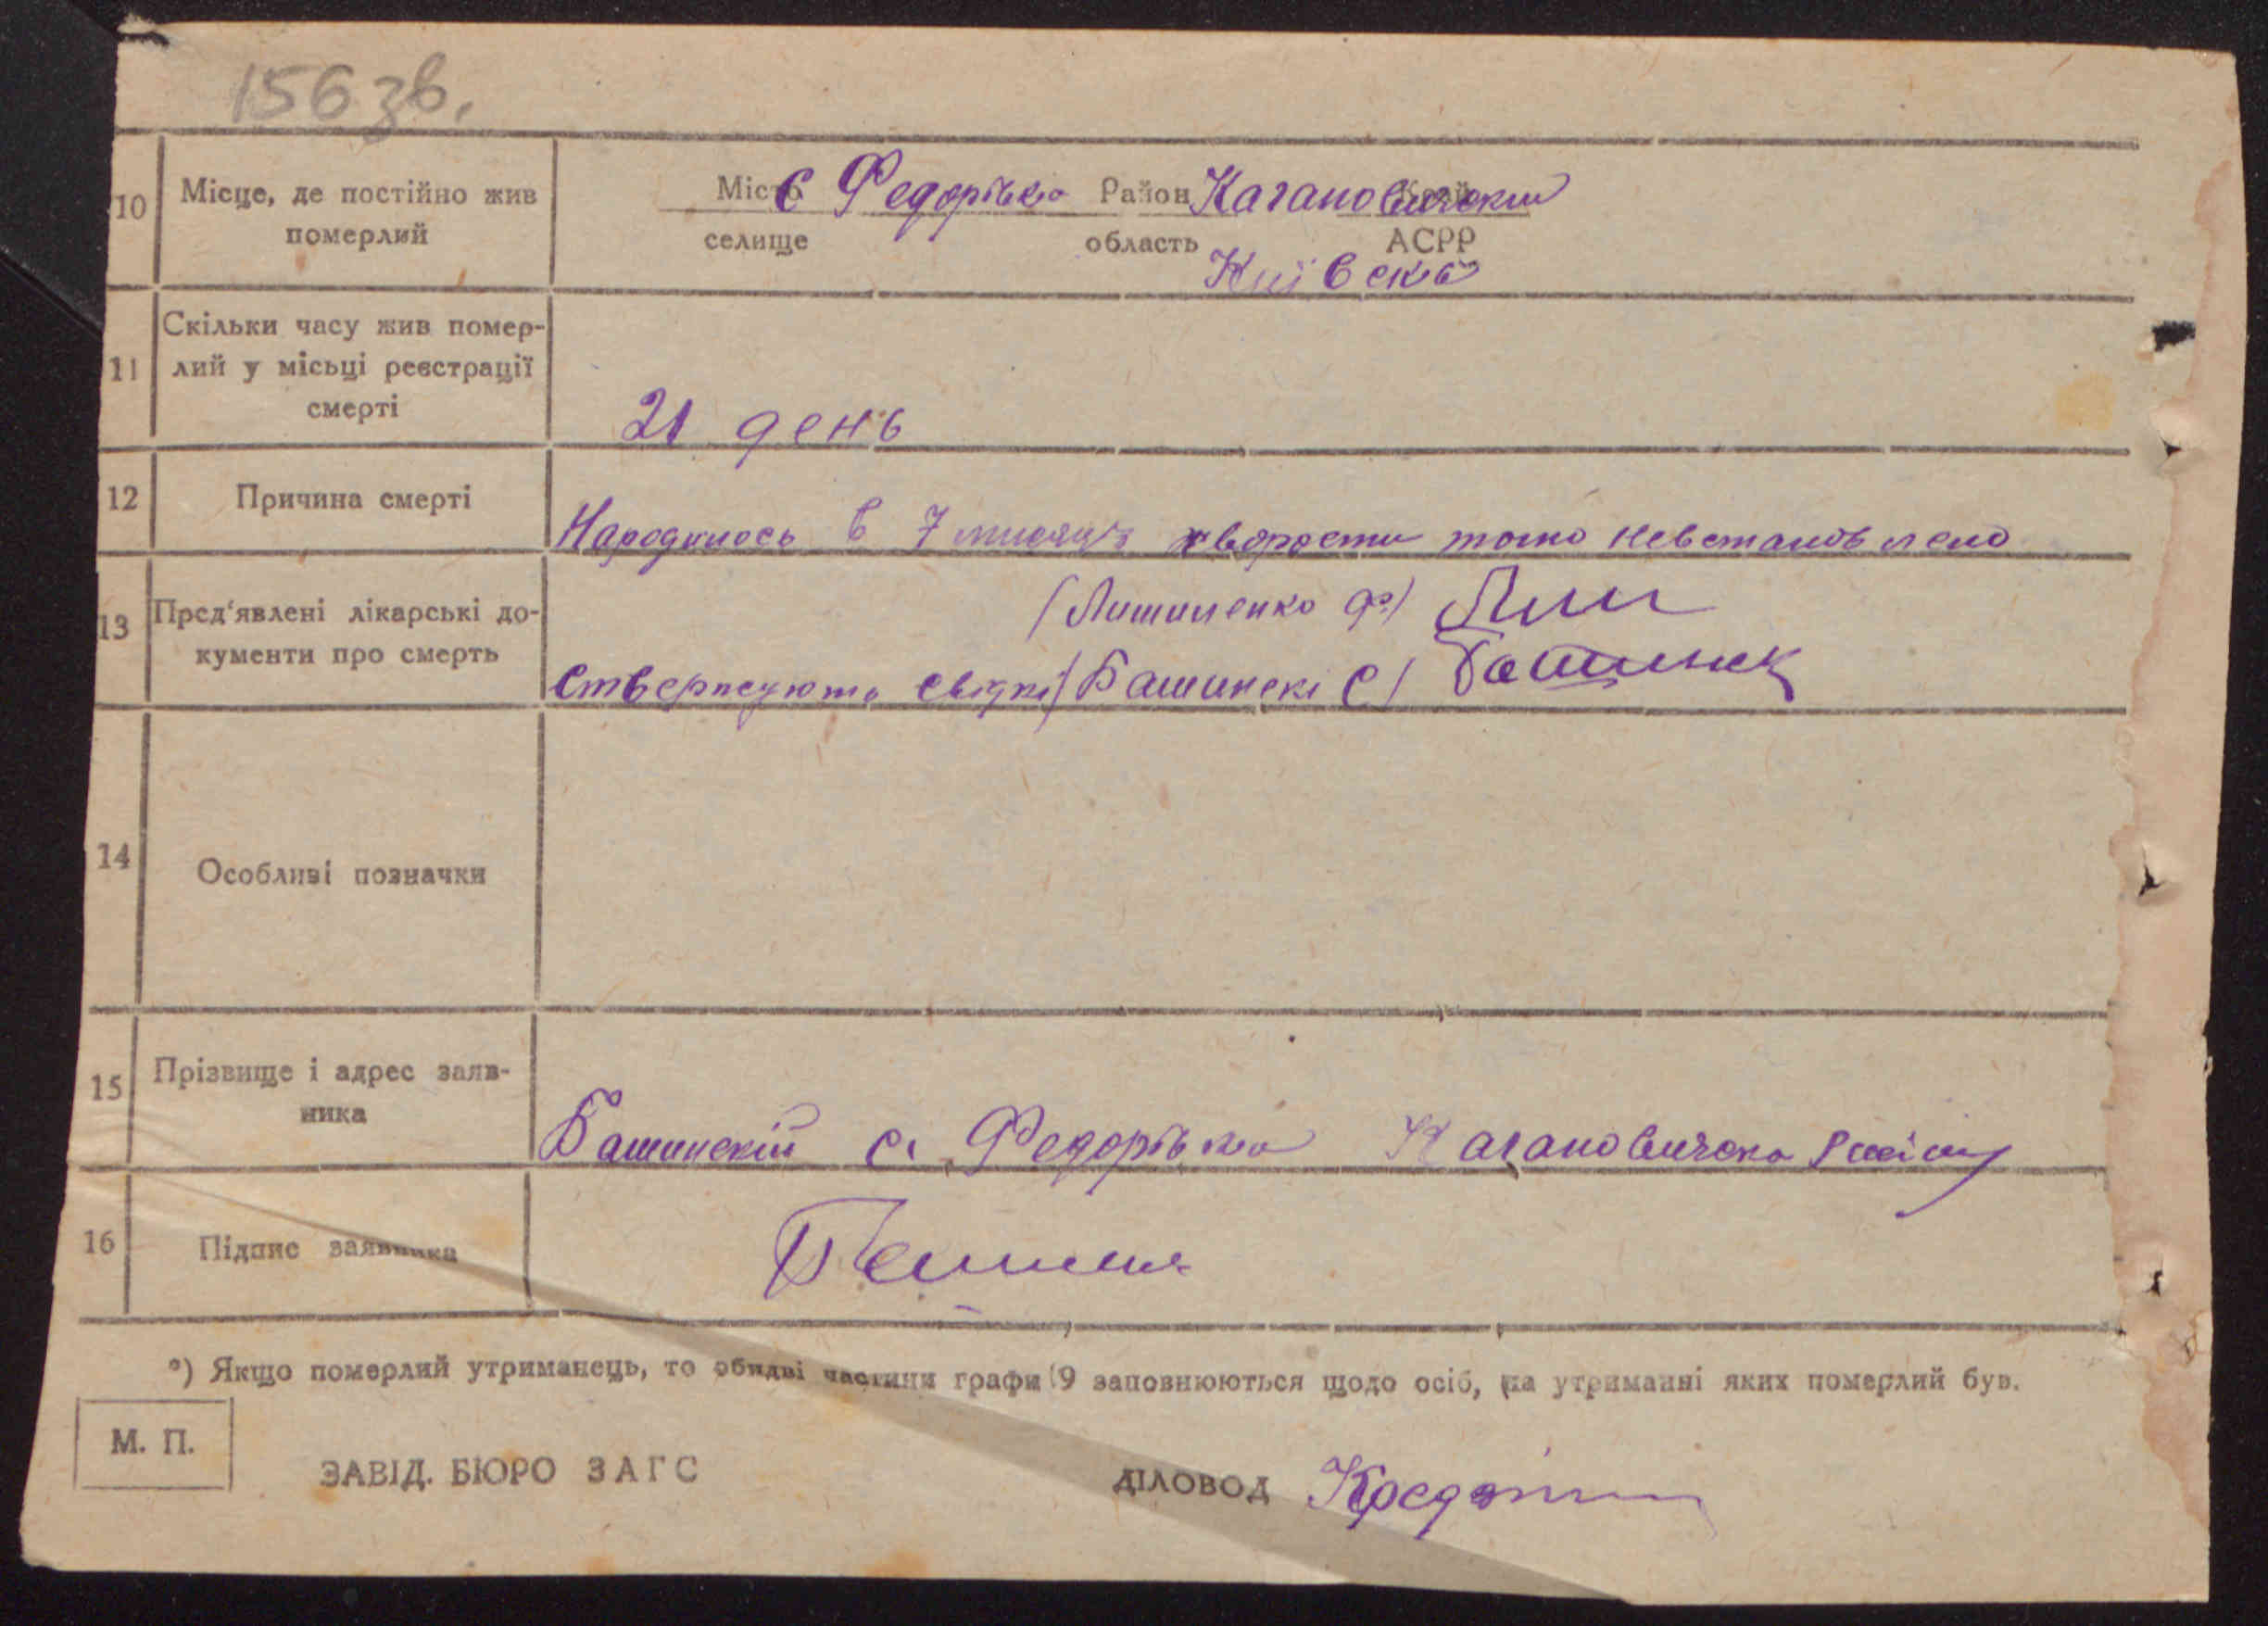 156 зв.
10 Місце, де постійно жив померлий
Місто С Федорівка Район Кагановичский Край
селище область АСРР
Київска
11 Скільки часу жив помер-
лий у місьці реєстрації
смерті
21 день
12 Причина смерті
Народилось в 7 місяців хворости точно невстановлено
13 Пред'явлені лікарські до-
кументи про смерть
(Лишиленко Ф)
Стверпедують свідкі (Башинскі С)
14 Особливі позначки
15 Прізвище і адрес заяв-
ника
Башинский с. Федорівка Кагановичско району
16 Підпис заявника
*) Якщо померлий утриманець, то обидві частини графи 9 заповнюються щодо осіб, на утриманні яких померлий був.
М. П.
ЗАВІД. БЮРО ЗАГС
ДІЛОВОД